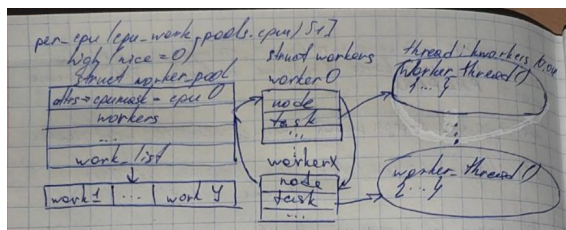 per_cpu (cpu_work_pools.cpu) [1]
high (nice = 0)
struct worker-pool
attrs → cpumask = cpu 0
workers
...
work_list
work 1 ... work y
struct workers
worker 0
node
task
...
worker x
node
task
...
thread: kworkers
worker_thread ()
{...}
:
worker_thread ()
{...}